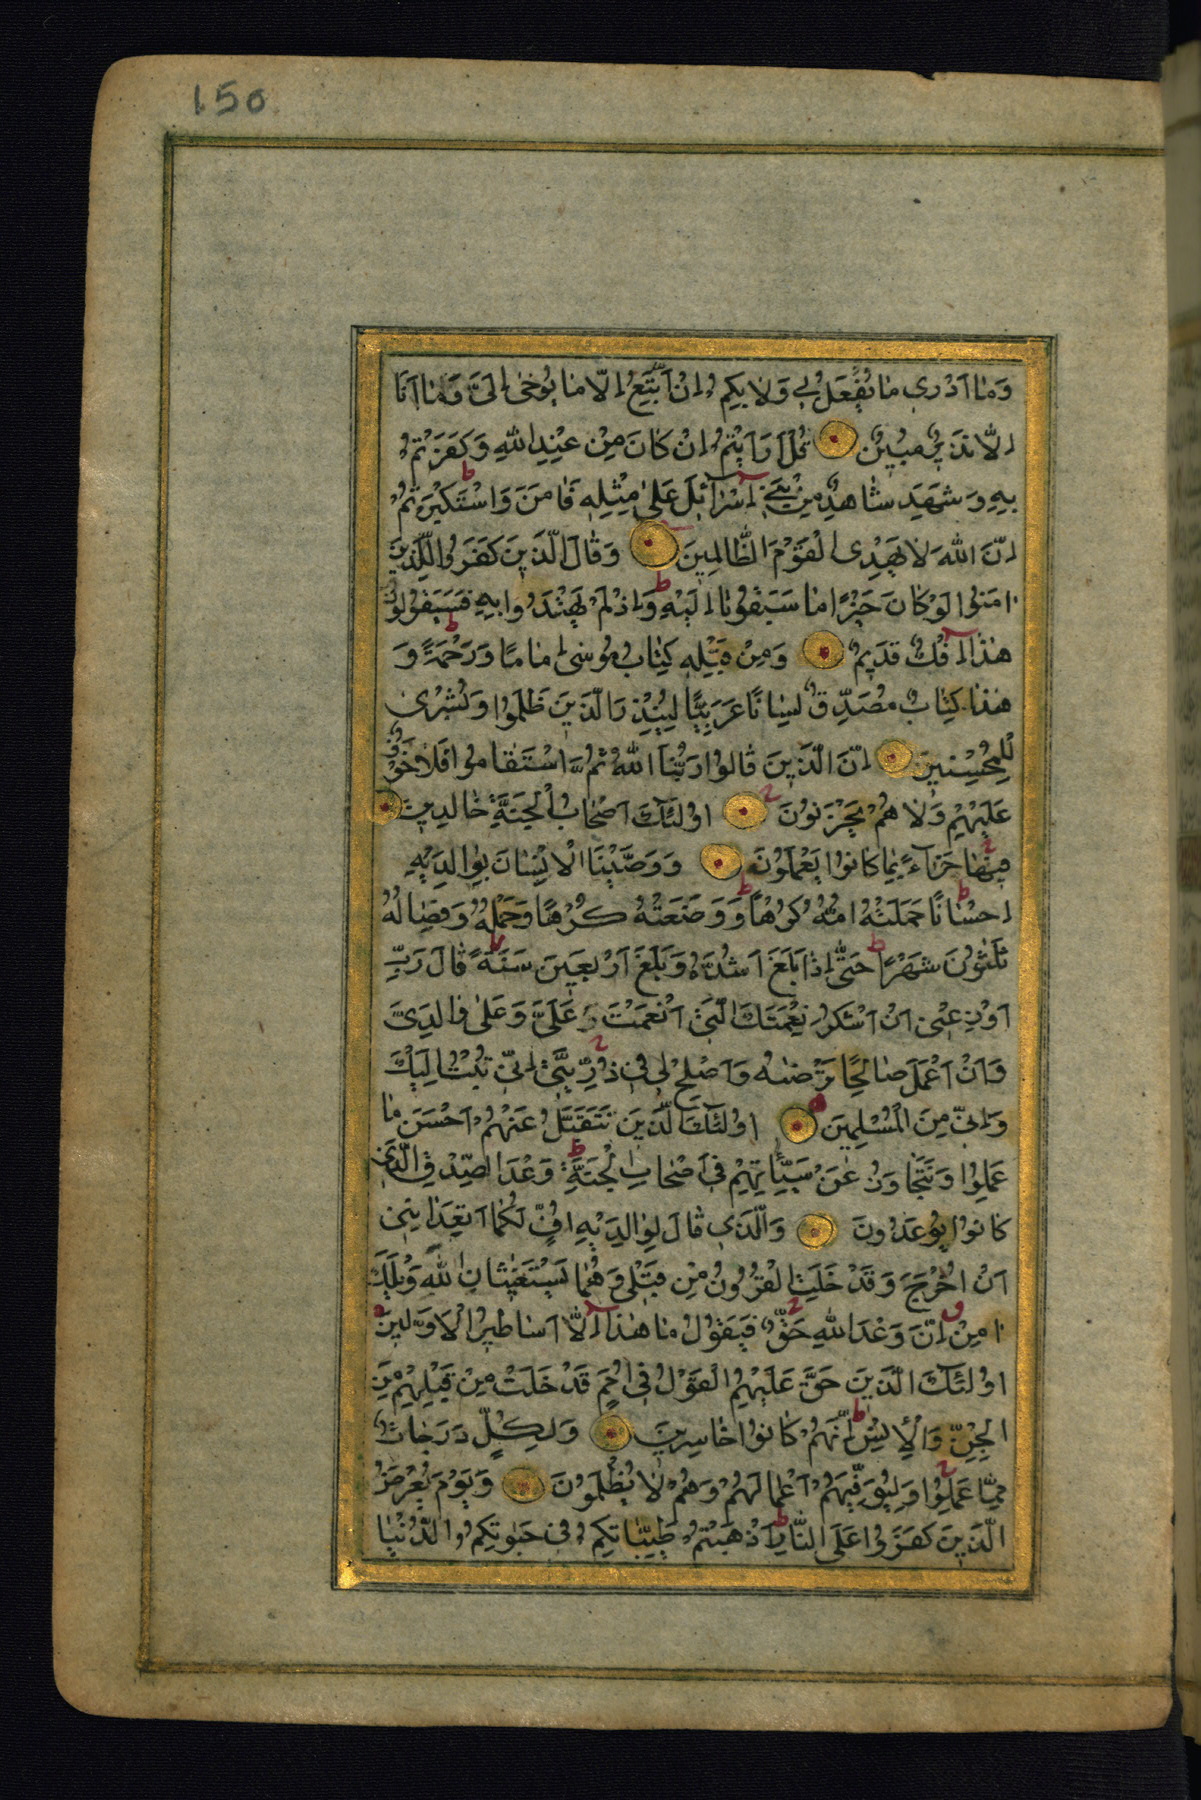 150
وَمَا اَدْرِي مَا يُفْعَلُ بِي وَلَا بِكُمْ اِنْ اَتَّبِعُ اِلَّا مَا يُوحٰى اِلَيَّ وَمَا اَنَا
اِلَّا نَذِيرٌ مُبِينٌ قُلْ اَرَاَيْتُمْ اِنْ كَانَ مِنْ عِنْدِ اللهِ وَكَفَرْتُمْ
بِهِ وَشَهِدَ شَاهِدٌ مِنْ بَنِي اِسْرَائِلَ عَلٰى مِثْلِهِ فَامَنَ وَاسْتَكْبَرْتُمْ
اِنَّ اللهَ لَا يَهْدِى الْقَوْمَ الظَّالِمِينَ وَقَالَ الَّذِينَ كَفَرُوا لِلَّذِينَ
اٰمَنُوا لَوْ كَانَ خَيْرًا مَا سَبَقُونَا اِلَيْهِ وَاِذْ لَمْ يَهْتَدُوا بِهِ فَسَيَقُولُونَ
هٰذَا اِفْكٌ قَدِيمٌ وَمِنْ قَبْلِهِ كِتَابُ مُوسٰى اِمَامًا وَرَحْمَةً وَ
هٰذَا كِتَابٌ مُصَدِّقٌ لِسَانًا عَرَبِيًّا لِيُنْذِرَ الَّذِينَ ظَلَمُوا وَبُشْرٰى
لِلْمُحْسِنِينَ اِنَّ الَّذِينَ قَالُوا رَبُّنَا اللهُ ثُمَّ اسْتَقَامُوا فَلَا خَوْفٌ
عَلَيْهِمْ وَلَا هُمْ يَحْزَنُونَ اُولٰئِكَ اَصْحَابُ الْجَنَّةِ خَالِدِينَ
فِيهَا جَزَاءً بِمَا كَانُوا يَعْمَلُونَ وَوَصَّيْنَا الْاِنْسَانَ بِوَالِدَيْهِ
اِحْسَانًا حَمَلَتْهُ اُمُّهُ كُرْهًا وَوَضَعَتْهُ كُرْهًا وَحَمْلُهُ وَفِصَالُهُ
ثَلٰثُونَ شَهْرًا حَتّٰى اِذَا بَلَغَ اَشُدَّهُ وَبَلَغَ اَرْبَعِينَ سَنَةً قَالَ رَبِّ
اَوْزِعْنِى اَنْ اَشْكُرَ نِعْمَتَكَ الَّتِى اَنْعَمْتَ عَلَيَّ وَعَلٰى وَالِدَيَّ
وَاَنْ اَعْمَلَ صَالِحًا تَرْضٰيهُ وَاَصْلِحْ لِى فِى ذُرِّيَّتِى اِنِّى تُبْتُ اِلَيْكَ
وَاِنِّى مِنَ الْمُسْلِمِينَ اُولٰئِكَ الَّذِينَ نَتَقَبَّلُ عَنْهُمْ اَحْسَنَ مَا
عَمِلُوا وَنَتَجَاوَزُ عَنْ سَيِّئَاتِهِمْ فِى اَصْحَابِ الْجَنَّةِ وَعْدَ الصِّدْقِ الَّذِى
كَانُوا يُوعَدُونَ وَالَّذِى قَالَ لِوَالِدَيْهِ اُفٍّ لَكُمَا اَتَعِدَانِنِى
اَنْ اُخْرَجَ وَقَدْ خَلَتِ الْقُرُونُ مِنْ قَبْلِى وَهُمَا يَسْتَغِيثَانِ اللهَ وَيْلَكَ
اٰمِنْ اِنَّ وَعْدَ اللهِ حَقٌّ فَيَقُولُ مَا هٰذَا اِلَّا اَسَاطِيرُ الْاَوَّلِينَ
اُولٰئِكَ الَّذِينَ حَقَّ عَلَيْهِمُ الْقَوْلُ فِى اُمَمٍ قَدْ خَلَتْ مِنْ قَبْلِهِمْ مِنَ
الْجِنِّ وَالْاِنْسِ اِنَّهُمْ كَانُوا خَاسِرِينَ وَلِكُلٍّ دَرَجَاتٌ
مِمَّا عَمِلُوا وَلِيُوَفِّيَهُمْ اَعْمَالَهُمْ وَهُمْ لَا يُظْلَمُونَ وَيَوْمَ يُعْرَضُ
الَّذِينَ كَفَرُوا عَلَى النَّارِ اَذْهَبْتُمْ طَيِّبَاتِكُمْ فِى حَيٰوتِكُمُ الدُّنْيَا